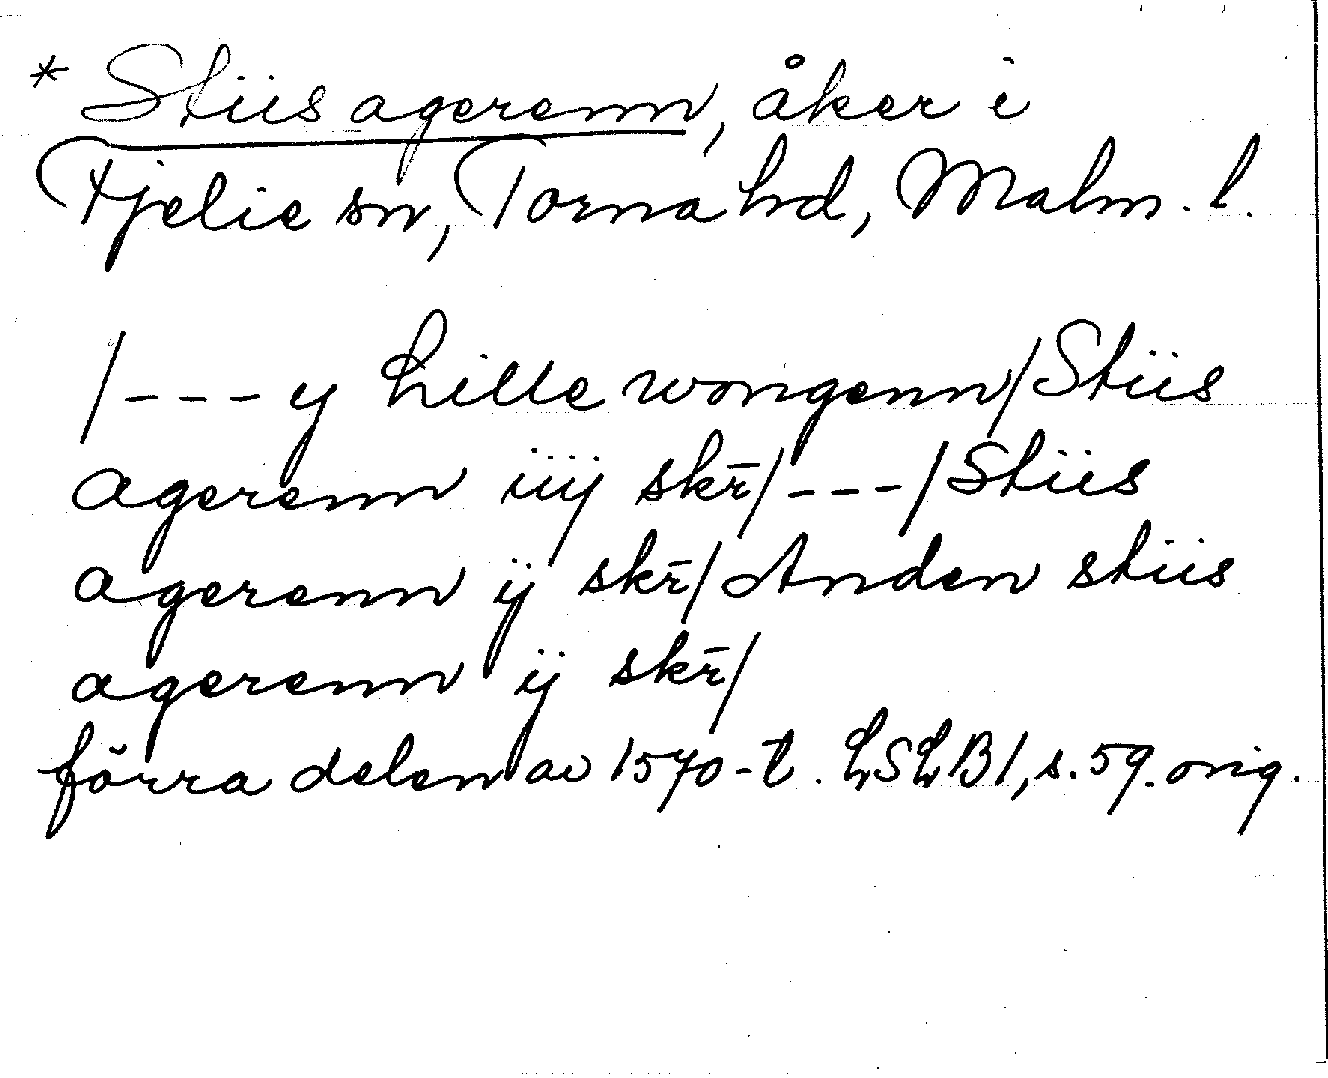 * Stiis agerenn, åker i
Fjelie sn, Torna hd, Malm. l.
/--- y Lille wongenn/ Stiis
agerenn iiij skr̄/---/ Stiis
agerenn ij skr̄/ Anden stiis
agerenn ij skr̄/
förra delen av 1570-t. LSLB 1, s. 59. orig.